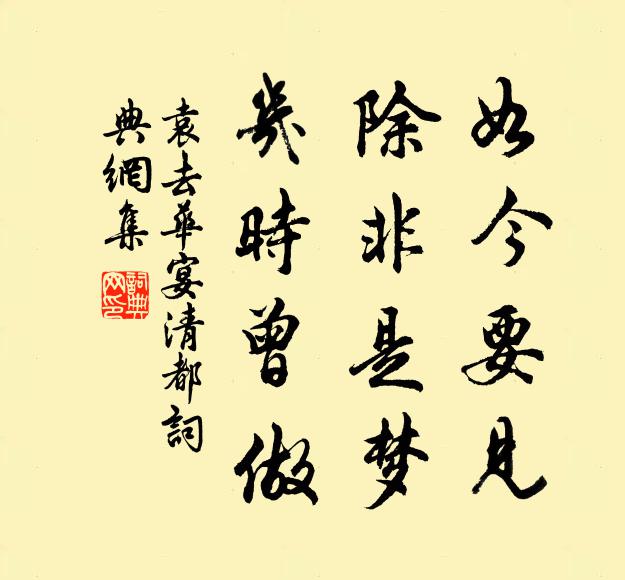 如今要見
除非是梦
幾時曾做
袁去華宴清都詞
典網集
詞典
网印